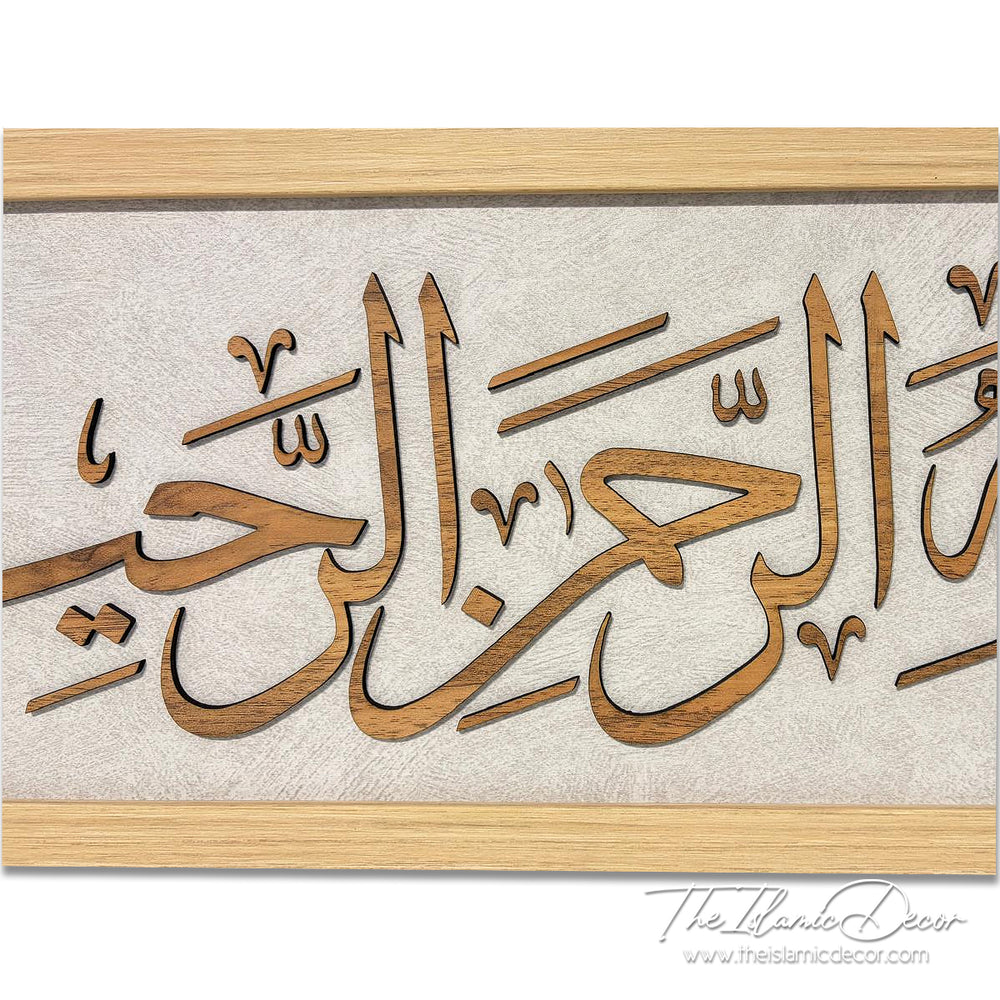 الرَّحْمَٰنِ الرَّحِيـ
The Islamic Decor
www.theislamicdecor.com